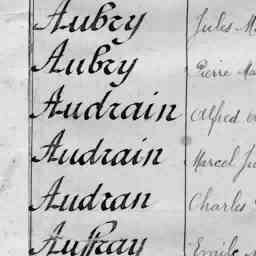 Aubry Jules
Aubry Pierre
Audrain Alfred
Audrain Marcel
Audran Charles
Auffray Emile